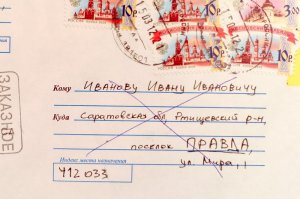 10 р
10 р
3.00
10 р
10 р
ЗАКАЗНОЕ
Кому Иванову Ивану Ивановичу
Куда Саратовская обл, Ртищевский р-н,
поселок ПРАВДА
ул. Мира, 1
Индекс места назначения
412 033